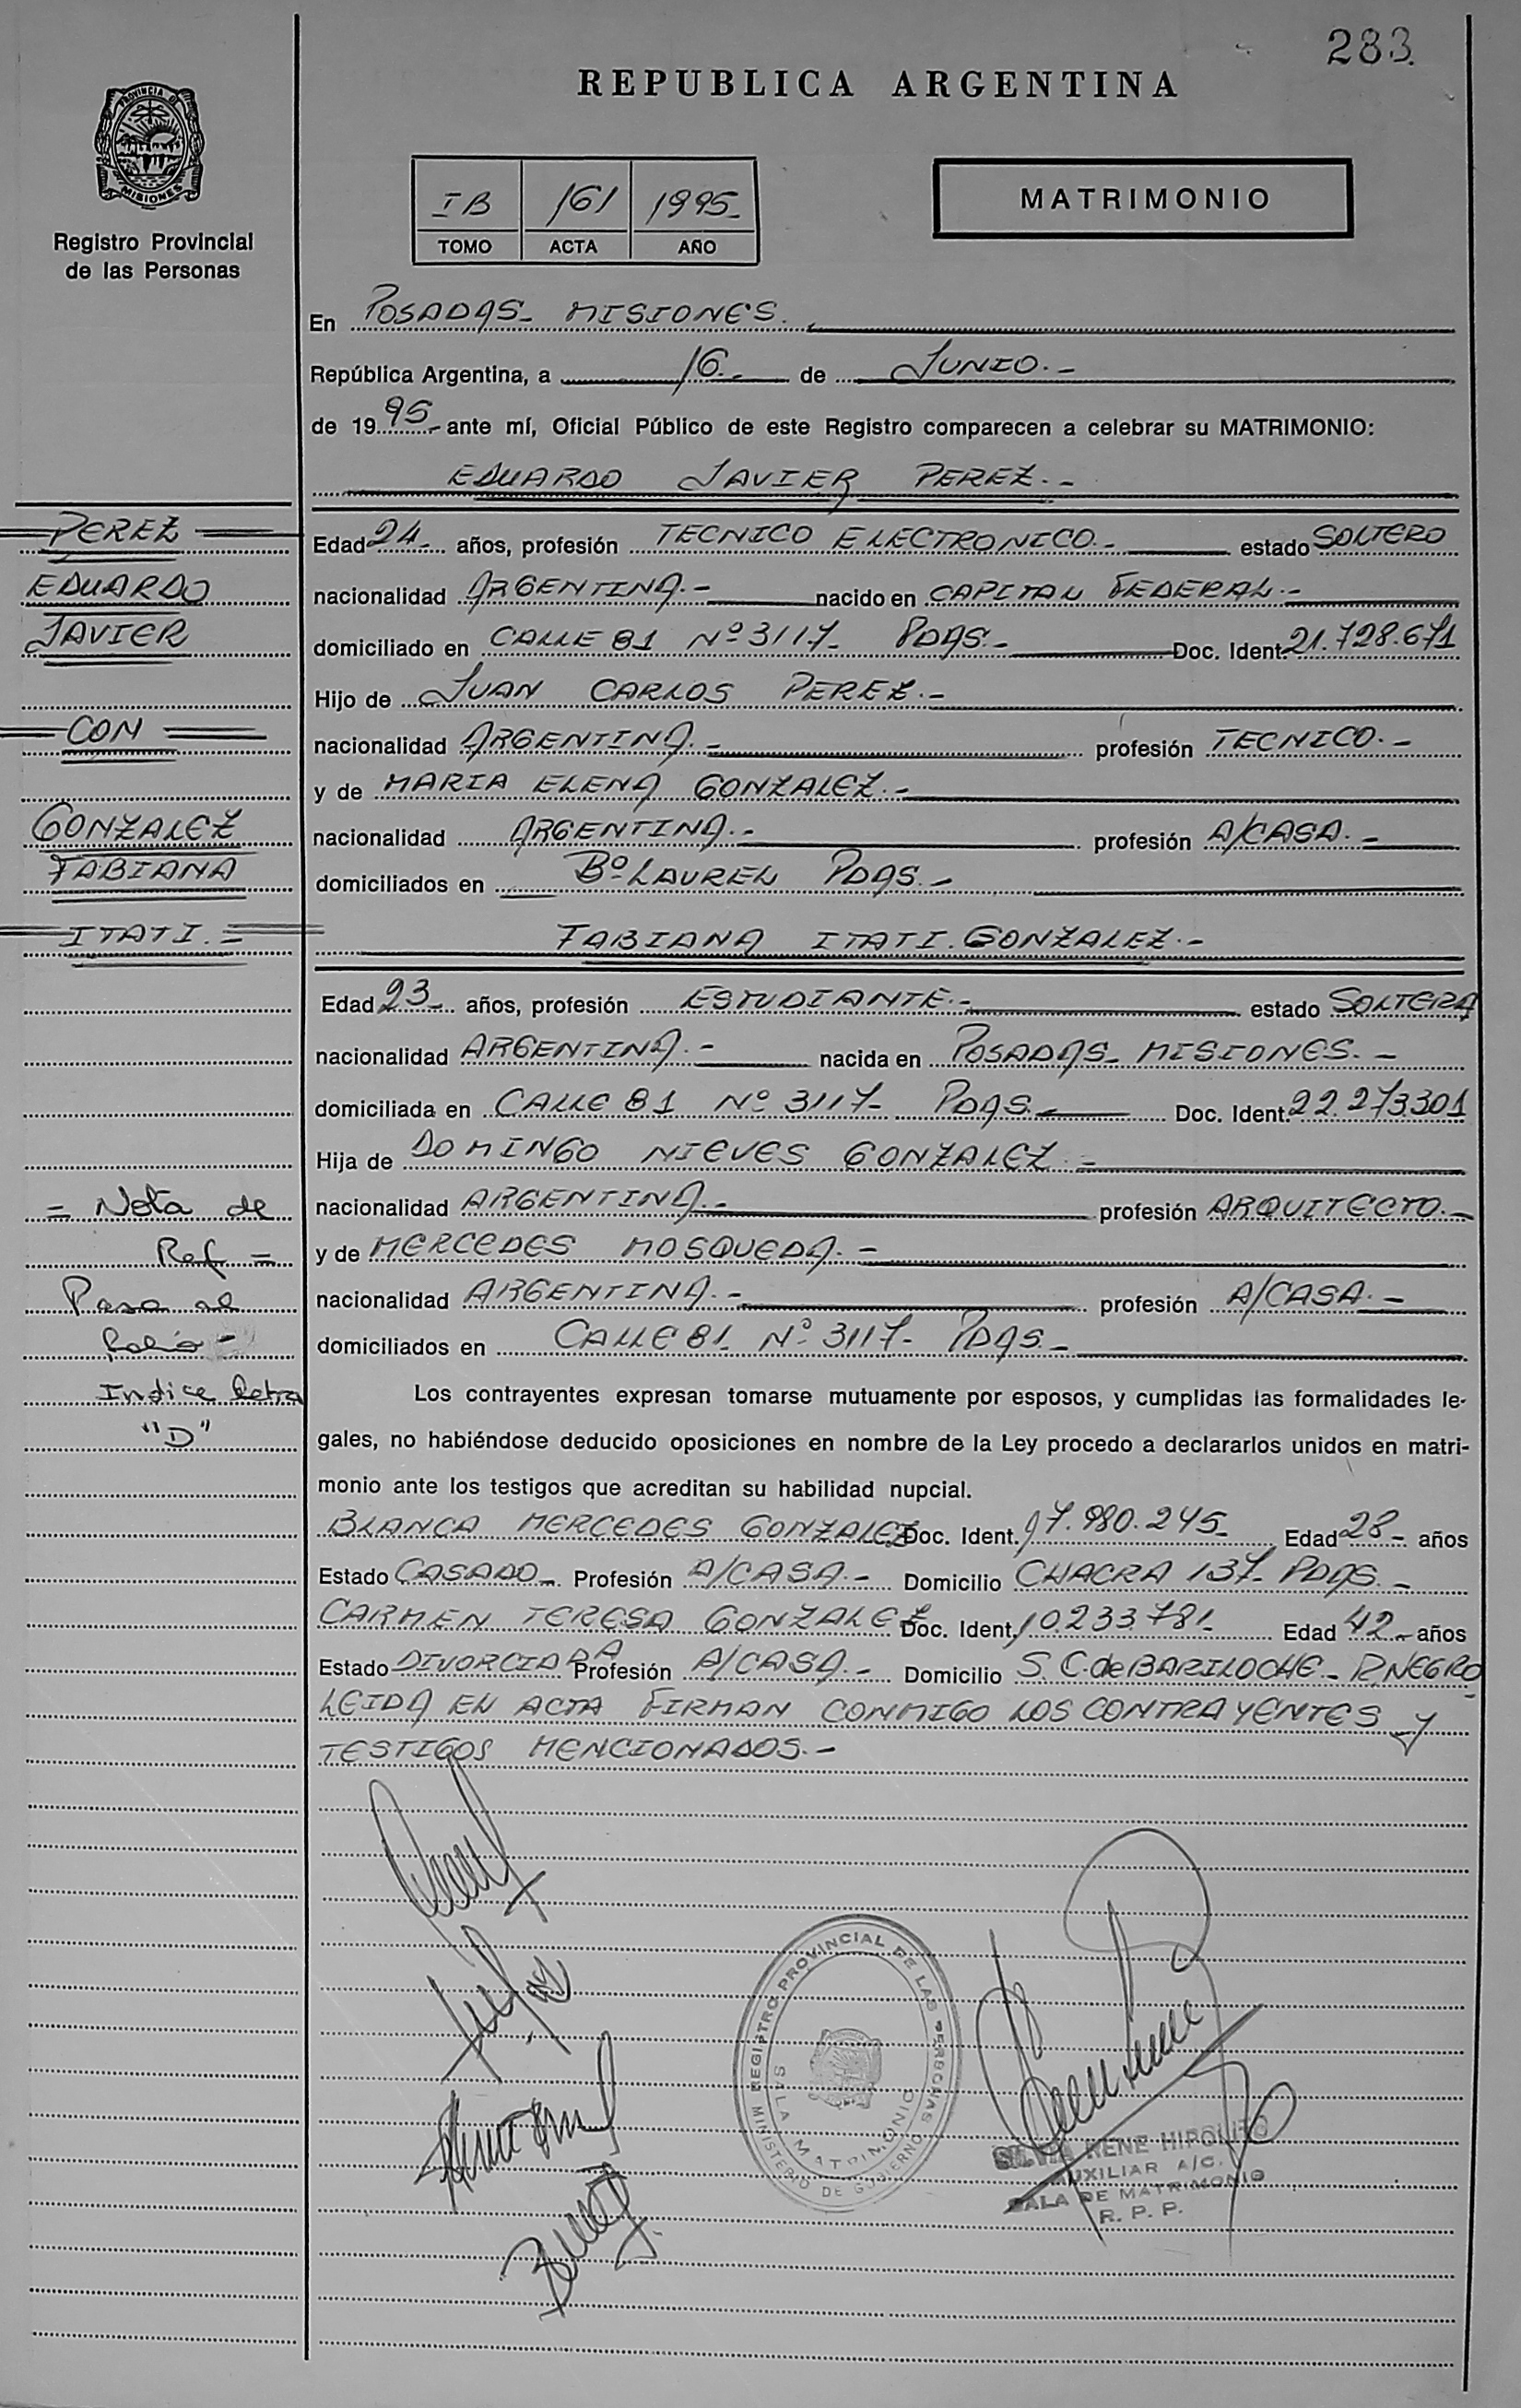 283.
REPUBLICA ARGENTINA
PROVINCIA DE MISIONES
Registro Provincial
de las Personas
IB 161 1995-
TOMO ACTA AÑO
MATRIMONIO
En POSADAS- MISIONES.
República Argentina, a 16.- de JUNIO.-
de 1995.- ante mí, Oficial Público de este Registro comparecen a celebrar su MATRIMONIO:
EDUARDO JAVIER PEREZ.-
PEREZ
EDUARDO
JAVIER
CON
GONZALEZ
FABIANA
ITATI.-
Edad 24- años, profesión TECNICO ELECTRONICO.- estado SOLTERO
nacionalidad ARGENTINA.- nacido en CAPITAL FEDERAL.-
domiciliado en CALLE 81 Nº 3117- PDAS.- Doc. Ident. 21.728.671
Hijo de JUAN CARLOS PEREZ.-
nacionalidad ARGENTINA.- profesión TECNICO.-
y de MARIA ELENA GONZALEZ.-
nacionalidad ARGENTINA.- profesión A/CASA.-
domiciliados en Bº LAUREL PDAS.-
FABIANA ITATI. GONZALEZ.-
Edad 23- años, profesión ESTUDIANTE.- estado SOLTERA
nacionalidad ARGENTINA.- nacida en POSADAS- MISIONES.-
domiciliada en CALLE 81 Nº 3117- PDAS.- Doc. Ident. 22.273301
Hija de DOMINGO NIEVES GONZALEZ.-
nacionalidad ARGENTINA.- profesión ARQUITECTO.-
y de MERCEDES MOSQUEDA.-
nacionalidad ARGENTINA.- profesión A/CASA.-
domiciliados en CALLE 81 Nº 3117- PDAS.-
= Nota de
Ref =
Pasa al
folio -
Indice letra
"D"
Los contrayentes expresan tomarse mutuamente por esposos, y cumplidas las formalidades le-
gales, no habiéndose deducido oposiciones en nombre de la Ley procedo a declararlos unidos en matri-
monio ante los testigos que acreditan su habilidad nupcial.
BLANCA MERCEDES GONZALEZ Doc. Ident. 17.980.245- Edad 28- años
Estado CASADO- Profesión A/CASA.- Domicilio CHACRA 137- PDAS.-
CARMEN TERESA GONZALEZ Doc. Ident. 10.233.781- Edad 42- años
Estado DIVORCIADA Profesión A/CASA.- Domicilio S.C. de BARILOCHE- R. NEGRO-
LEIDA EL ACTA FIRMAN CONMIGO LOS CONTRAYENTES y
TESTIGOS MENCIONADOS.-
REGISTRO PROVINCIAL DE LAS PERSONAS
SALA MATRIMONIO
MINISTERIO DE GOBIERNO
SILVIA RENE HIPOLITO
AUXILIAR A/C.
SALA DE MATRIMONIO
R. P. P.